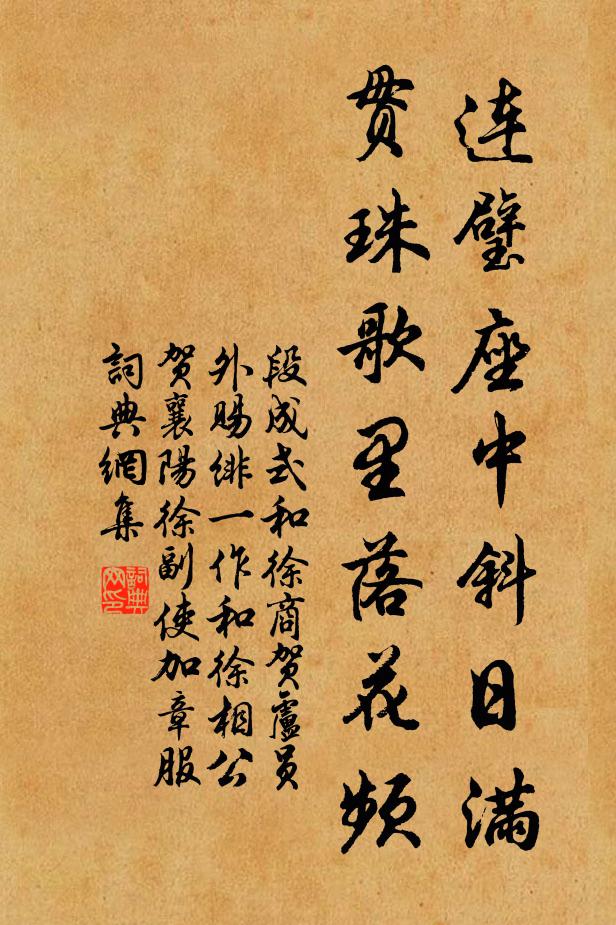 連璧座中斜日滿
贯珠歌里落花頻
段成式和徐商贺盧员
外赐绯一作和徐相公
贺襄陽徐副使加章服
詞典網集
詞典
网印